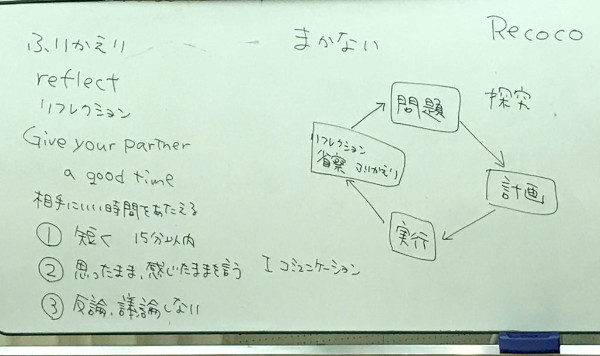 ふりかえり
まかない
Recoco
reflect
リフレクション
Give your partner
a good time
相手にいい時間をあたえる
① 短く 15分以内
② 思ったまま、感じたままを言う I コミュニケーション
③ 反論、議論しない
問題
探究
計画
実行
リフレクション
省察 ふりかえり